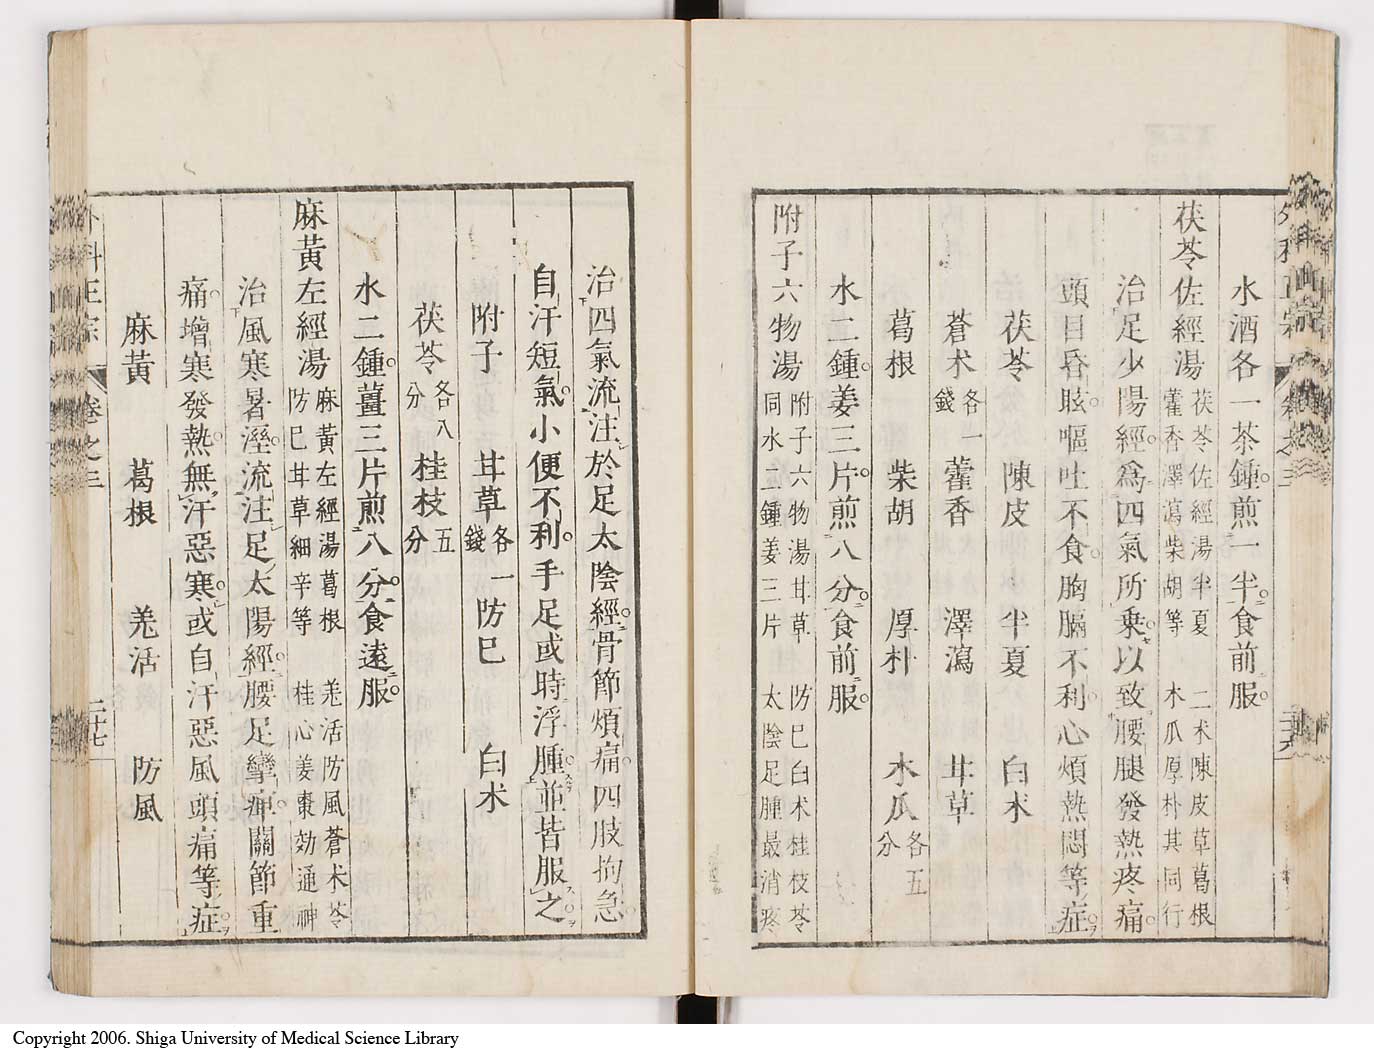 水酒各一茶鍾煎一半食前服
茯苓佐經湯 茯苓佐經湯半夏 二朮陳皮草葛根
藿香澤瀉柴胡等 木瓜厚朴其同行
治足少陽經爲四氣所乘以致腰腿發熱疼痛
頭目昏眩嘔吐不食胸膈不利心煩熱悶等症
茯苓 陳皮 半夏 白朮
蒼朮各一錢 藿香 澤瀉 甘草
葛根 柴胡 厚朴 木瓜各五分
水二鍾姜三片煎八分食前服
附子六物湯 附子六物湯甘草 防巳白朮桂枝苓
同水二鍾姜三片 太陰足腫最消疼
治四氣流注於足太陰經骨節煩痛四肢拘急
自汗短氣小便不利手足或時浮腫並皆服之
附子 甘草各一錢 防巳 白朮
茯苓各八分 桂枝五分
水二鍾薑三片煎八分食遠服
麻黄左經湯 麻黄左經湯葛根 羌活防風蒼朮苓
防巳甘草細辛等 桂心姜棗効通神
治風寒暑溼流注足太陽經腰足攣痺關節重
痛增寒發熱無汗惡寒或自汗惡風頭痛等症
麻黄 葛根 羌活 防風
外科正宗 卷之三 二十七
Copyright 2006. Shiga University of Medical Science Library